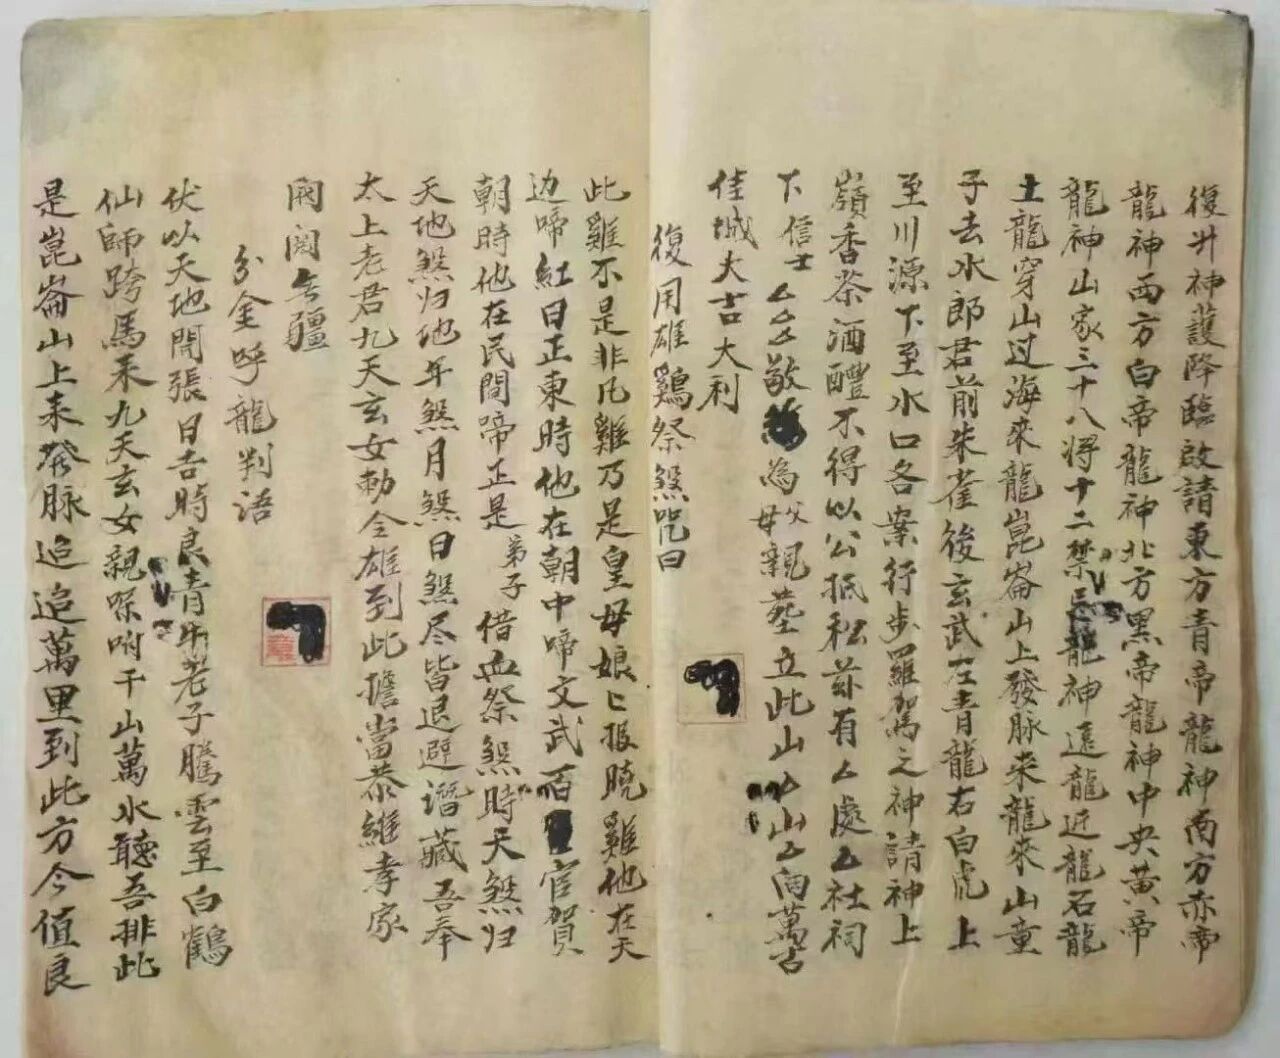 復升神護降臨啟請東方青帝龍神南方赤帝
龍神西方白帝龍神北方黑帝龍神中央黃帝
龍神山家三十八將十二禁忌龍神遠龍近龍石龍
土龍穿山过海來龍崑崙山上發脉来龍來山童
子去水郎君前朱雀後玄武左青龍右白虎上
至川源下至水口各案行步羅駕之神請神上
嶺香茶酒醴不得以公抵私茲有厶處厶社祠
下信士厶厶敬為父母親塋立此山厶山厶向萬古
佳城大吉大利
復用雄鷄祭煞咒曰
此雞不是非凡雞乃是皇母娘匕报曉雞他在天
边啼紅日正東時他在朝中啼文武百官賀
朝時他在民間啼正是弟子借血祭煞時天煞归
天地煞归地年煞月煞日煞尽皆退避潛藏吾奉
太上老君九天玄女勅令雄到此擔當恭維孝家
閎闳無疆
分金呼龍判语
伏以天地開張日吉時良青牛老子騰雲至白鶴
仙師跨馬来九天玄女親嚟咐千山萬水聽吾排此
是崑崙山上来發脉迢迢萬里到此方今值良